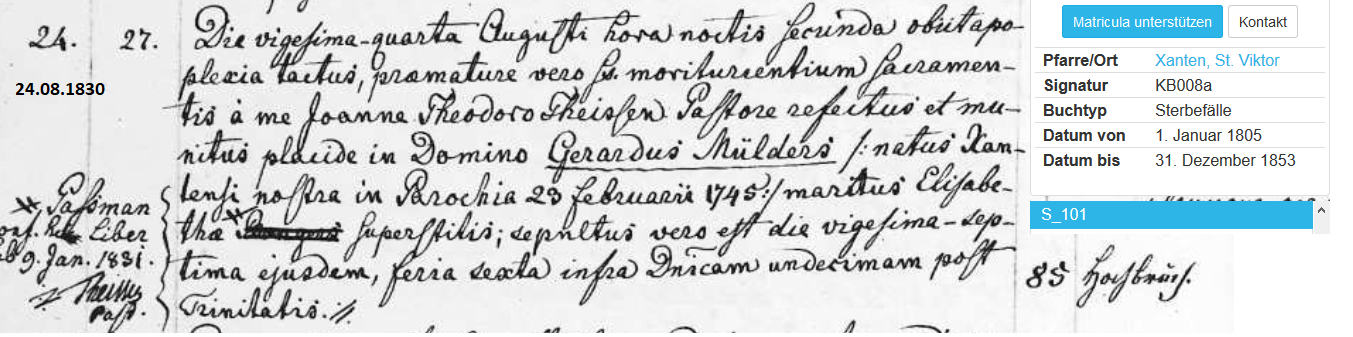 24. 27. Die vigesima-quarta Augusti hora noctis secunda obiit apo-
plexia tactus, præmature vero ss. moriturientium Sacramen-
24.08.1830
tis à me Joanne Theodoro Theissen Pastore refectus et mu-
nitus placide in Domino Gerardus Mülders /: natus Xan-
tensi nostra in Parochia 23 februarii 1745 :/ maritus Elisabe-
thæ superstitis; sepultus vero est die vigesima-sep-
tima ejusdem, feria sexta infra Dnicam undecimam post
Trinitatis.
Passman
Liber
9. Jan. 1831.
Theissen
Past.
85
Matricula unterstützen
Kontakt
Pfarre/Ort Xanten, St. Viktor
Signatur KB008a
Buchtyp Sterbefälle
Datum von 1. Januar 1805
Datum bis 31. Dezember 1853
S_101